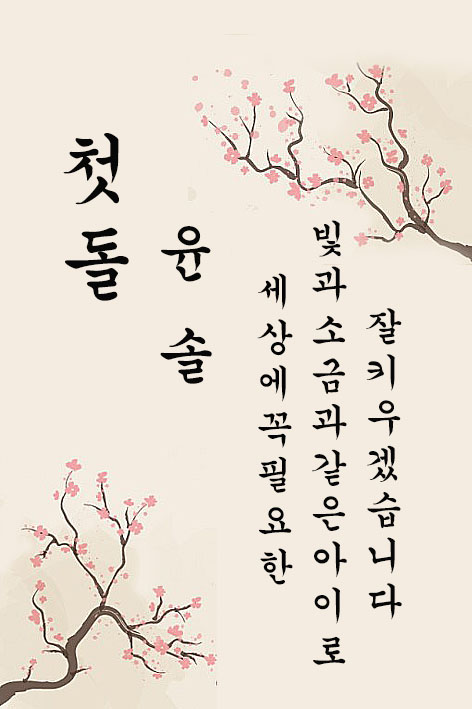 첫돌
윤솔
세상에꼭필요한
빛과소금과같은아이로
잘키우겠습니다